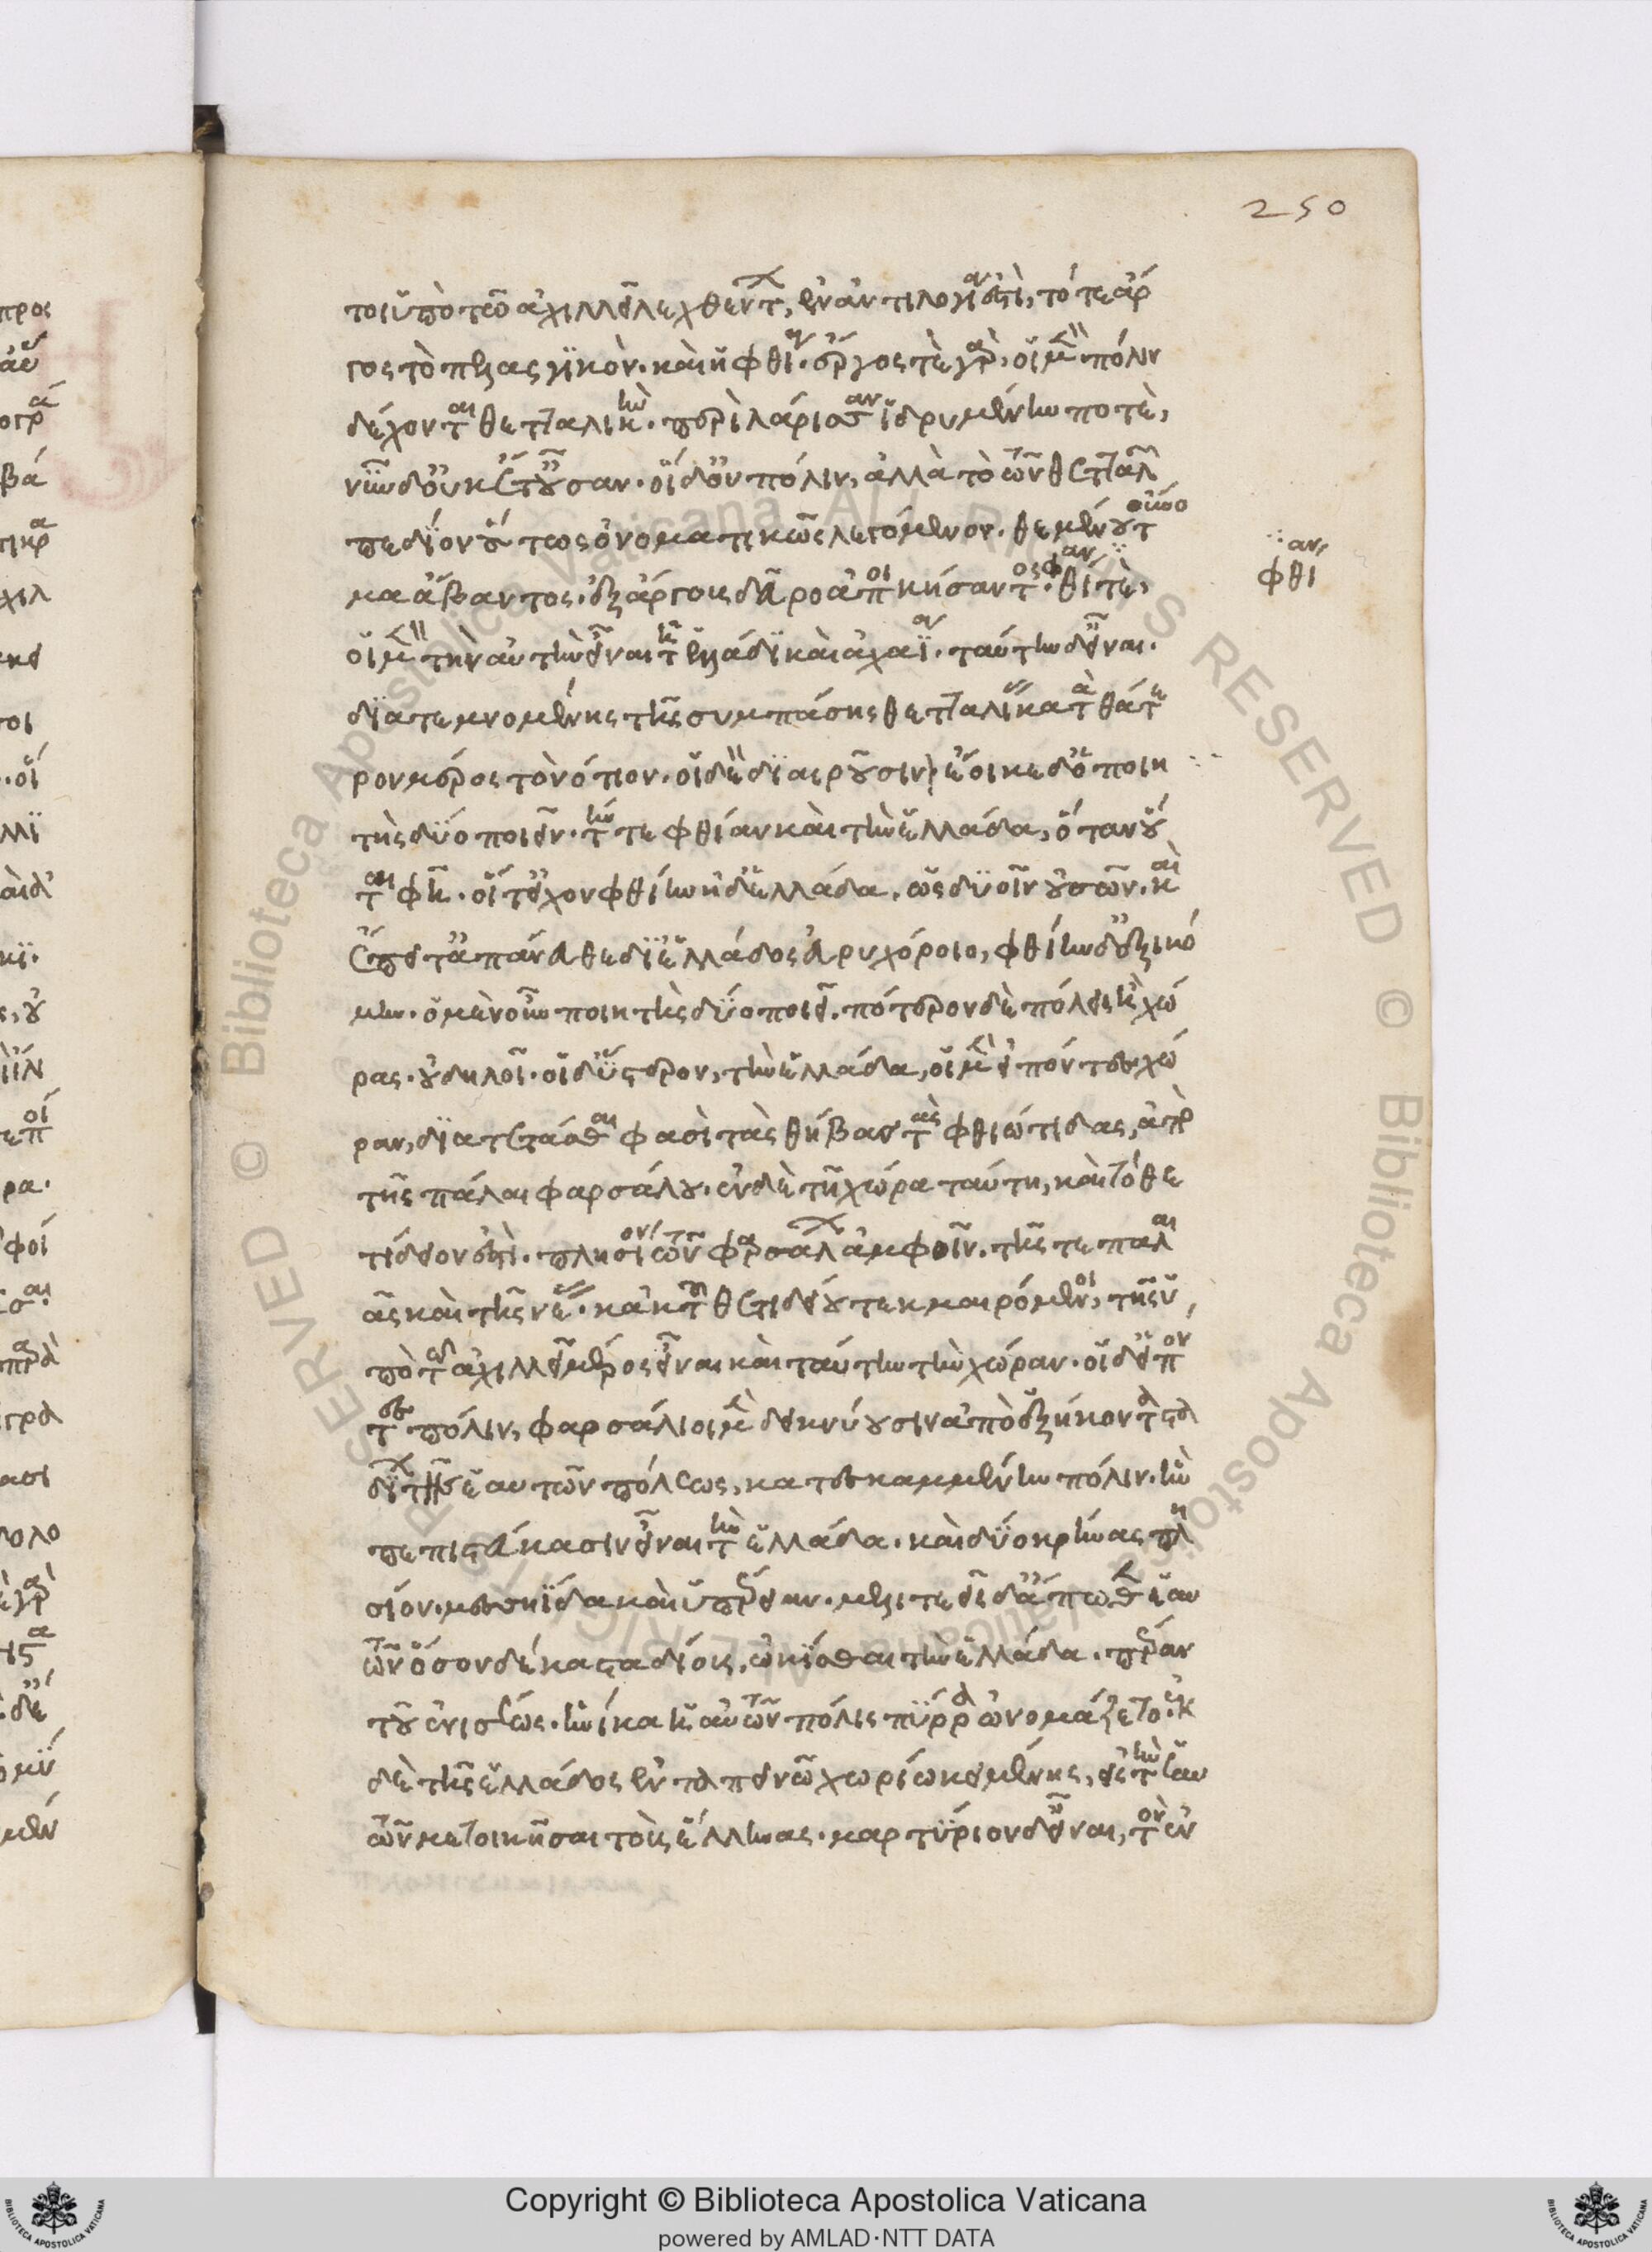 250
τοι ὑπὸ τῶ ἀχιλλεῖ λεχθέντων, ἐν ἀντιλογίαν ἐστὶ, τό τε ἄρ
γος τὸ πελασγικὸν. καὶ ἡ φθία. ἄργος τὲ γὰρ, οἱ μὲν πόλιν
δέχονται θετταλικὴν. περὶ λάρισσαν ἱδρυμένην ποτὲ,
νῦν δ' οὐκέτ' οὖσαν. οἱ δ' οὐ πόλιν, ἀλλὰ τὸ τῶν θετταλῶν
πεδίον οὕτως ὀνοματικῶς λεγόμενον. θεμένου τοὔνο
μα ἄβαντος. ἐξ ἄργους δεῦρο ἀποικήσαντος. φθίαν τὲ,
φθίαν
οἱ μὲν τὴν αὐτὴν εἶναι τῆ ἑλλάδι καὶ ἀχαΐα. ταύτην δ' εἶναι.
διατεμνομένης τῆς συμπάσης θετταλίας κατὰ θάτε
ρον μέρος τὸ νότιον. οἱ δὲ διαιροῦσιν. ἔοικε δ' ὁ ποιη
τὴς δύο ποιεῖν. τήν τε φθίαν καὶ τὴν ἑλλάδα, ὅταν οὕ
τω φῆ. οἵ τ' εἶχον φθίην ἠδ' ἑλλάδα, ὡς δυοῖν οὐσῶν. καὶ
ἔπειτ' ἀπάνευθε δι' ἑλλάδος εὐρυχόροιο, φθίην δ' ἐξικό
μην. ὁ μὲν οὖν ποιητὴς δύο ποιεῖ. πότερον δὲ πόλεις ἢ χώ
ρας. οὐ δηλοῖ. οἱ δ' ὕστερον, τὴν ἑλλάδα, οἱ μὲν εἰπόντες χώ
ραν, διατετάσθαι φασὶ τὰς θήβας τὰς φθιώτιδας, ἀπὸ
τῆς πάλαι φαρσάλου. ἐν δὲ τῆ χώρα ταύτη, καὶ τὸ θε
τίδειον ἐστὶ. πλησίον τῶν φαρσάλων ἀμφοῖν. τῆς τε παλαι
ᾶς καὶ τῆς νέας. κἀκ τοῦ θετιδείου τεκμαιρόμενοι, τῆς ὑ
πὸ τῶ ἀχιλλεῖ μέρος εἶναι καὶ ταύτην τὴν χώραν. οἱ δ' εἰπόν
τες πόλιν, φαρσάλιοι μὲν δεικνύουσιν ἀπὸ ἑξήκοντα στα
δίων τῆς ἑαυτῶν πόλεως, κατεσκαμμένην πόλιν. ἣν
πεπιστεύκασιν εἶναι τὴν ἑλλάδα. καὶ δύο κρήνας πλη
σίον. μεσσηΐδα καὶ ὑπέρειαν. μελιτεεῖς δ' ἄπωθεν ἑαυ
τῶν ὅσον δέκα σταδίοις, ὠκῆσθαι τὴν ἑλλάδα. πέραν
τοῦ ἐνιπέως. ἡνίκα ἡ αὐτῶν πόλις πύρρα ὠνομάζετο. ἐκ
δὲ τῆς ἑλλάδος ἐν ταπεινῶ χωρίω κειμένης, εἰς τὴν ἑαυ
τῶν μετοικῆσαι τοὺς ἕλληνας. μαρτύριον δ' εἶναι, τὸν ἐν
Copyright © Biblioteca Apostolica Vaticana
powered by AMLAD·NTT DATA